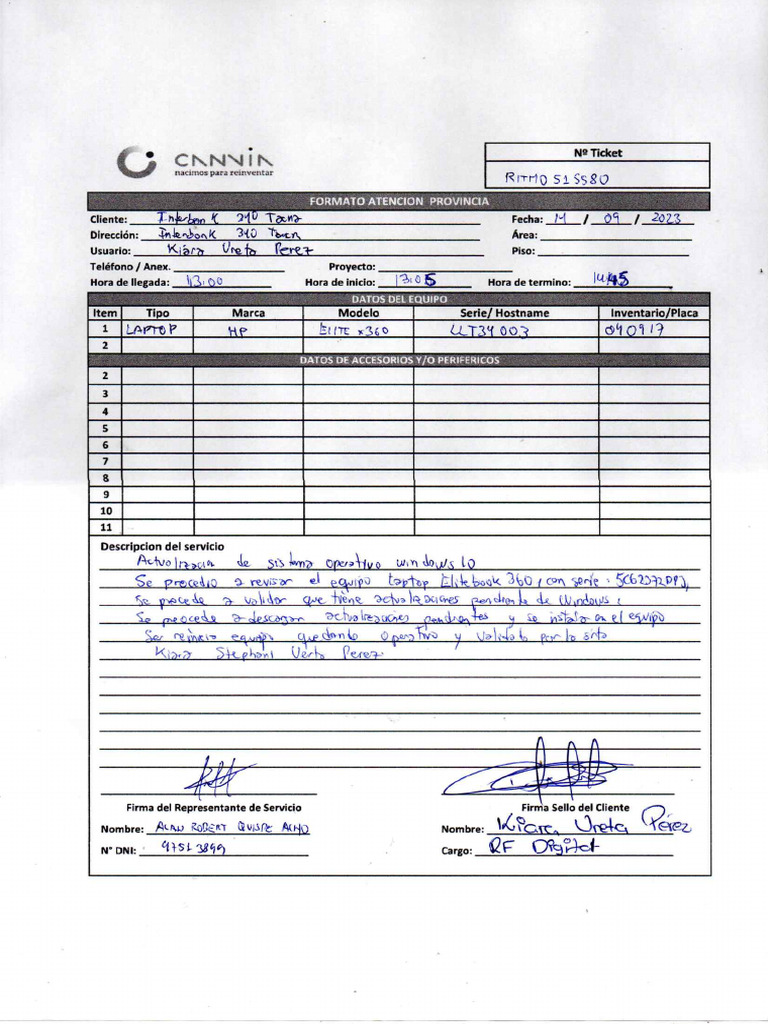 CANVIA
nacimos para reinventar
Nº Ticket
RITM0515580
FORMATO ATENCION PROVINCIA
Cliente: Interbank 310 Tacna
Fecha: 14 / 09 / 2023
Dirección: Interbank 310 Tacn
Área:
Usuario: Kiara Ureta Perez
Piso:
Teléfono / Anex.
Proyecto:
Hora de llegada: 13:00
Hora de inicio: 13:05
Hora de termino: 14:45
DATOS DEL EQUIPO
Item Tipo Marca Modelo Serie/ Hostname Inventario/Placa
1 LAPTOP HP ELITE x360 LLT34003 040917
2
DATOS DE ACCESORIOS Y/O PERIFERICOS
2
3
4
5
6
7
8
9
10
11
Descripcion del servicio
Actualizacion de sistema operativo windows 10
Se procedio a revisar el equipo Laptop Elitebook 360, con serie:
Se procede a validar que tiene actualizaciones pendiente de Windows,
Se procede a descargar actualizaciones pendientes y se instala en el equipo
Ser reinicio equipo quedando operativo y validado por la srta
Kiara Stephani Perez.
Firma del Representante de Servicio
Firma Sello del Cliente
Nombre: ALAN ROBERT QUISPE
Nombre: Kiara Ureta Pérez
N° DNI: 47513899
Cargo: RF Digital